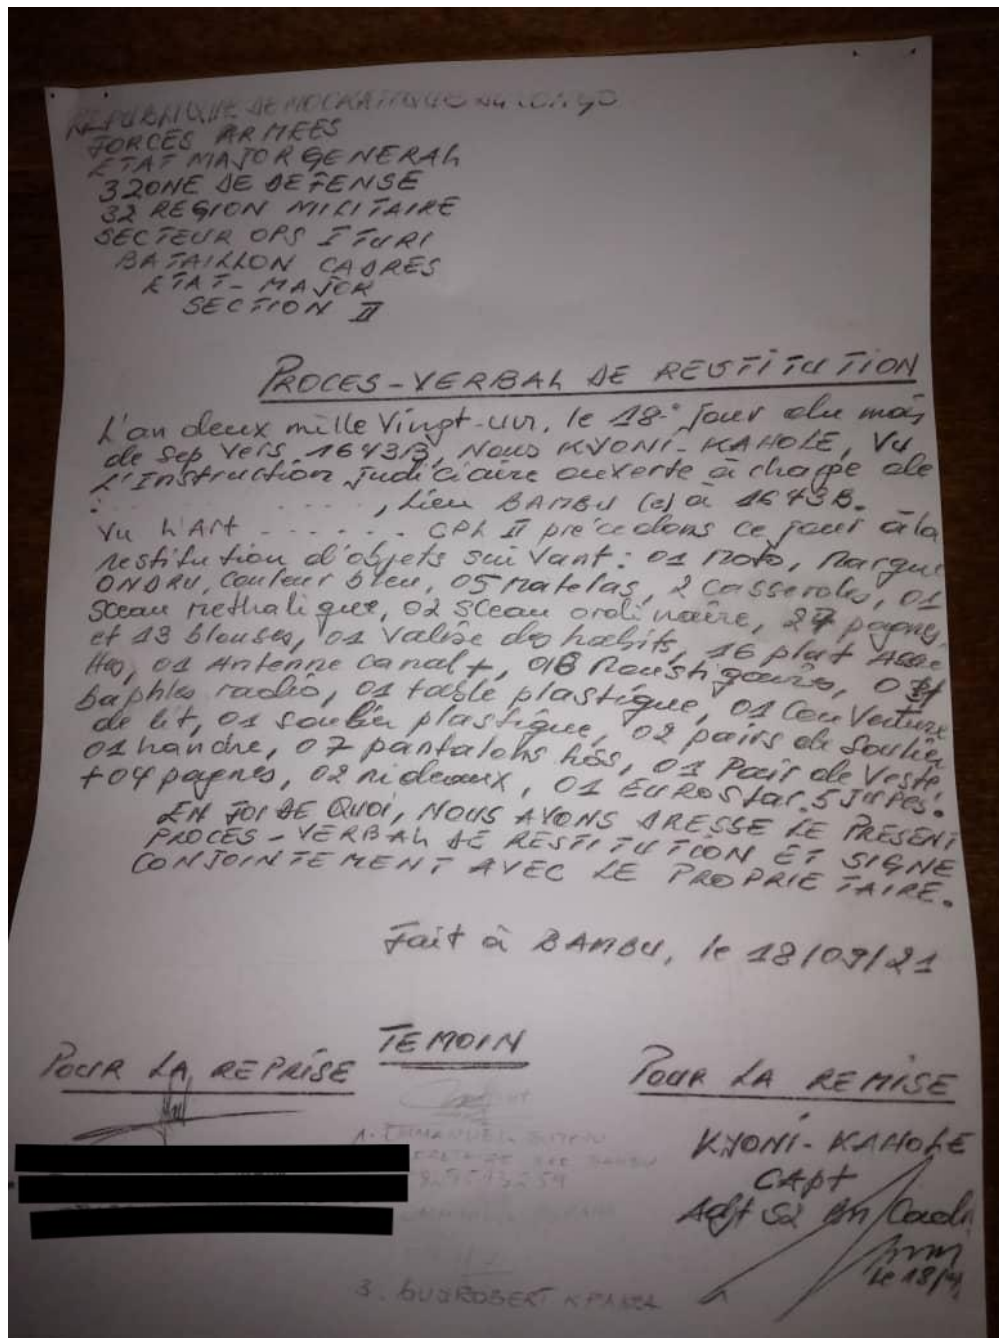 REPUBLIQUE DEMOCRATIQUE DU CONGO
FORCES ARMEES
ETAT MAJOR GENERAL
3 ZONE DE DEFENSE
32 REGION MILITAIRE
SECTEUR OPS ITURI
BATAILLON CADRES
ETAT-MAJOR
SECTION II
PROCES-VERBAL DE RESTITUTION
L'an deux mille Vingt-un, le 18e jour du mois
de Sep vers 1643B, Nous KYONI-KAHOLE, Vu
L'Instruction judiciaire ouverte à charge de
: . . . . , Lieu BAMBU (e) à 1643B.
Vu L'Art . . . . . . CPL II précedons ce jour à la
restitution d'objets suivant: 01 Moto, Marque
ONDRU, Couleur bleu, 05 Matelas, 2 Casseroles, 01
Sceau methalique, 02 Sceau ordinaire, 27 pagnes
et 13 blouses, 01 Valise des habits, 16 plat
01 Antenne canal+, 0
baphles radio, 01 table plastique, 01 Couverture
de lit, 01 soulier plastique, 02 pairs de Soulier
01 handre, 07 pantalons 01 Pair de Veste
+04 pagnes, 02 rideaux, 01 EUROStar. 5 Jupes.
EN FOI DE QUOI, NOUS AVONS DRESSE LE PRESENT
PROCES-VERBAL DE RESTITUTION ET SIGNE
CONJOINTEMENT AVEC LE PROPRIETAIRE.
Fait à BAMBU, le 18/09/21
TEMOIN
POUR LA REPRISE
POUR LA REMISE
1. EMMANUEL
KYONI-KAHOLE
BAMBU
CAPt
Adjt S2 Bn
le 18/
3. ROBERT